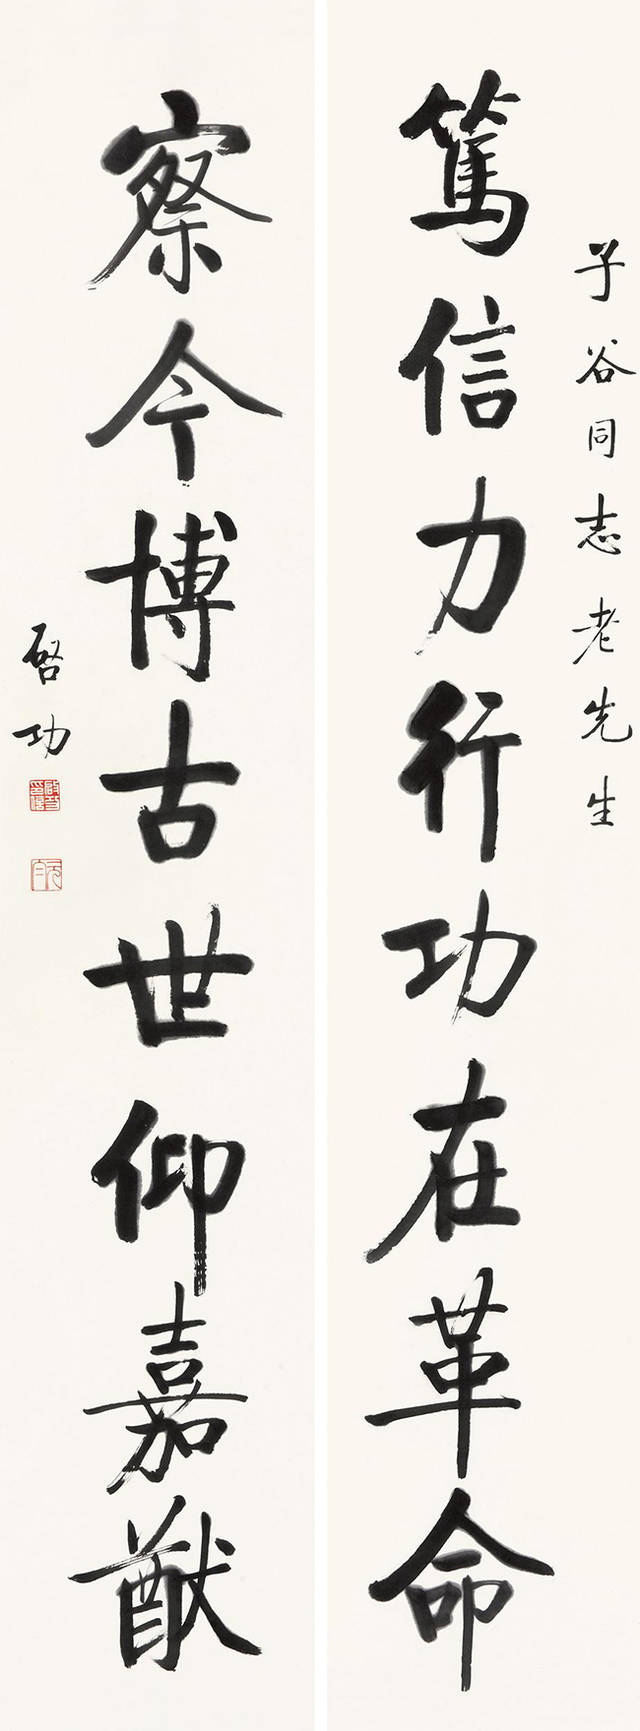 子谷同志老先生
篤信力行功在革命
察今博古世仰嘉猷
啓功